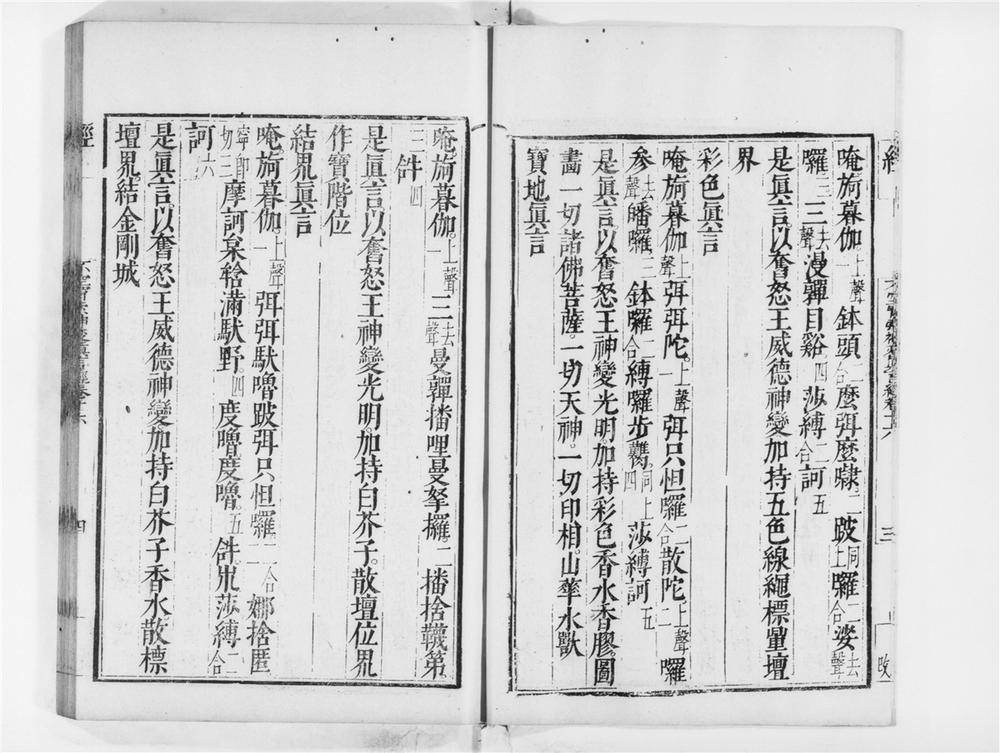 唵旃暮伽一上聲鉢頭二合麼弭麼隸二跛同上囉二合娑去聲
囉三三去聲漫嚲目谿四莎縛二合訶五
是眞言以奮怒王威德神變加持五色線繩標量壇
界
彩色眞言
唵旃暮伽上聲弭弭陀一上聲弭只怛囉二合散陀上聲二囉
參去聲皤囉三鉢囉二合縛囉步㩲同上四莎縛訶五
是眞言以奮怒王神變光明加持彩色香水香膠圖
畫一切諸佛菩薩一切天神一切印相山華水獸
寶地眞言
唵旃暮伽一上聲三去聲曼嚲播哩曼拏攞二播捨韈第
三𤙖四
是眞言以奮怒王神變光明加持白芥子散壇位界
作寶階位
結界眞言
唵旃暮伽一上聲弭弭馱嚕跛弭只怛囉二合二娜捨匿
寧卽切三摩訶枲鞥滿馱野四度嚕度嚕五𤙖㞕莎縛二合
訶六
是眞言以奮怒王威德神變加持白芥子香水散標
壇界結金剛城
經
三
經
四